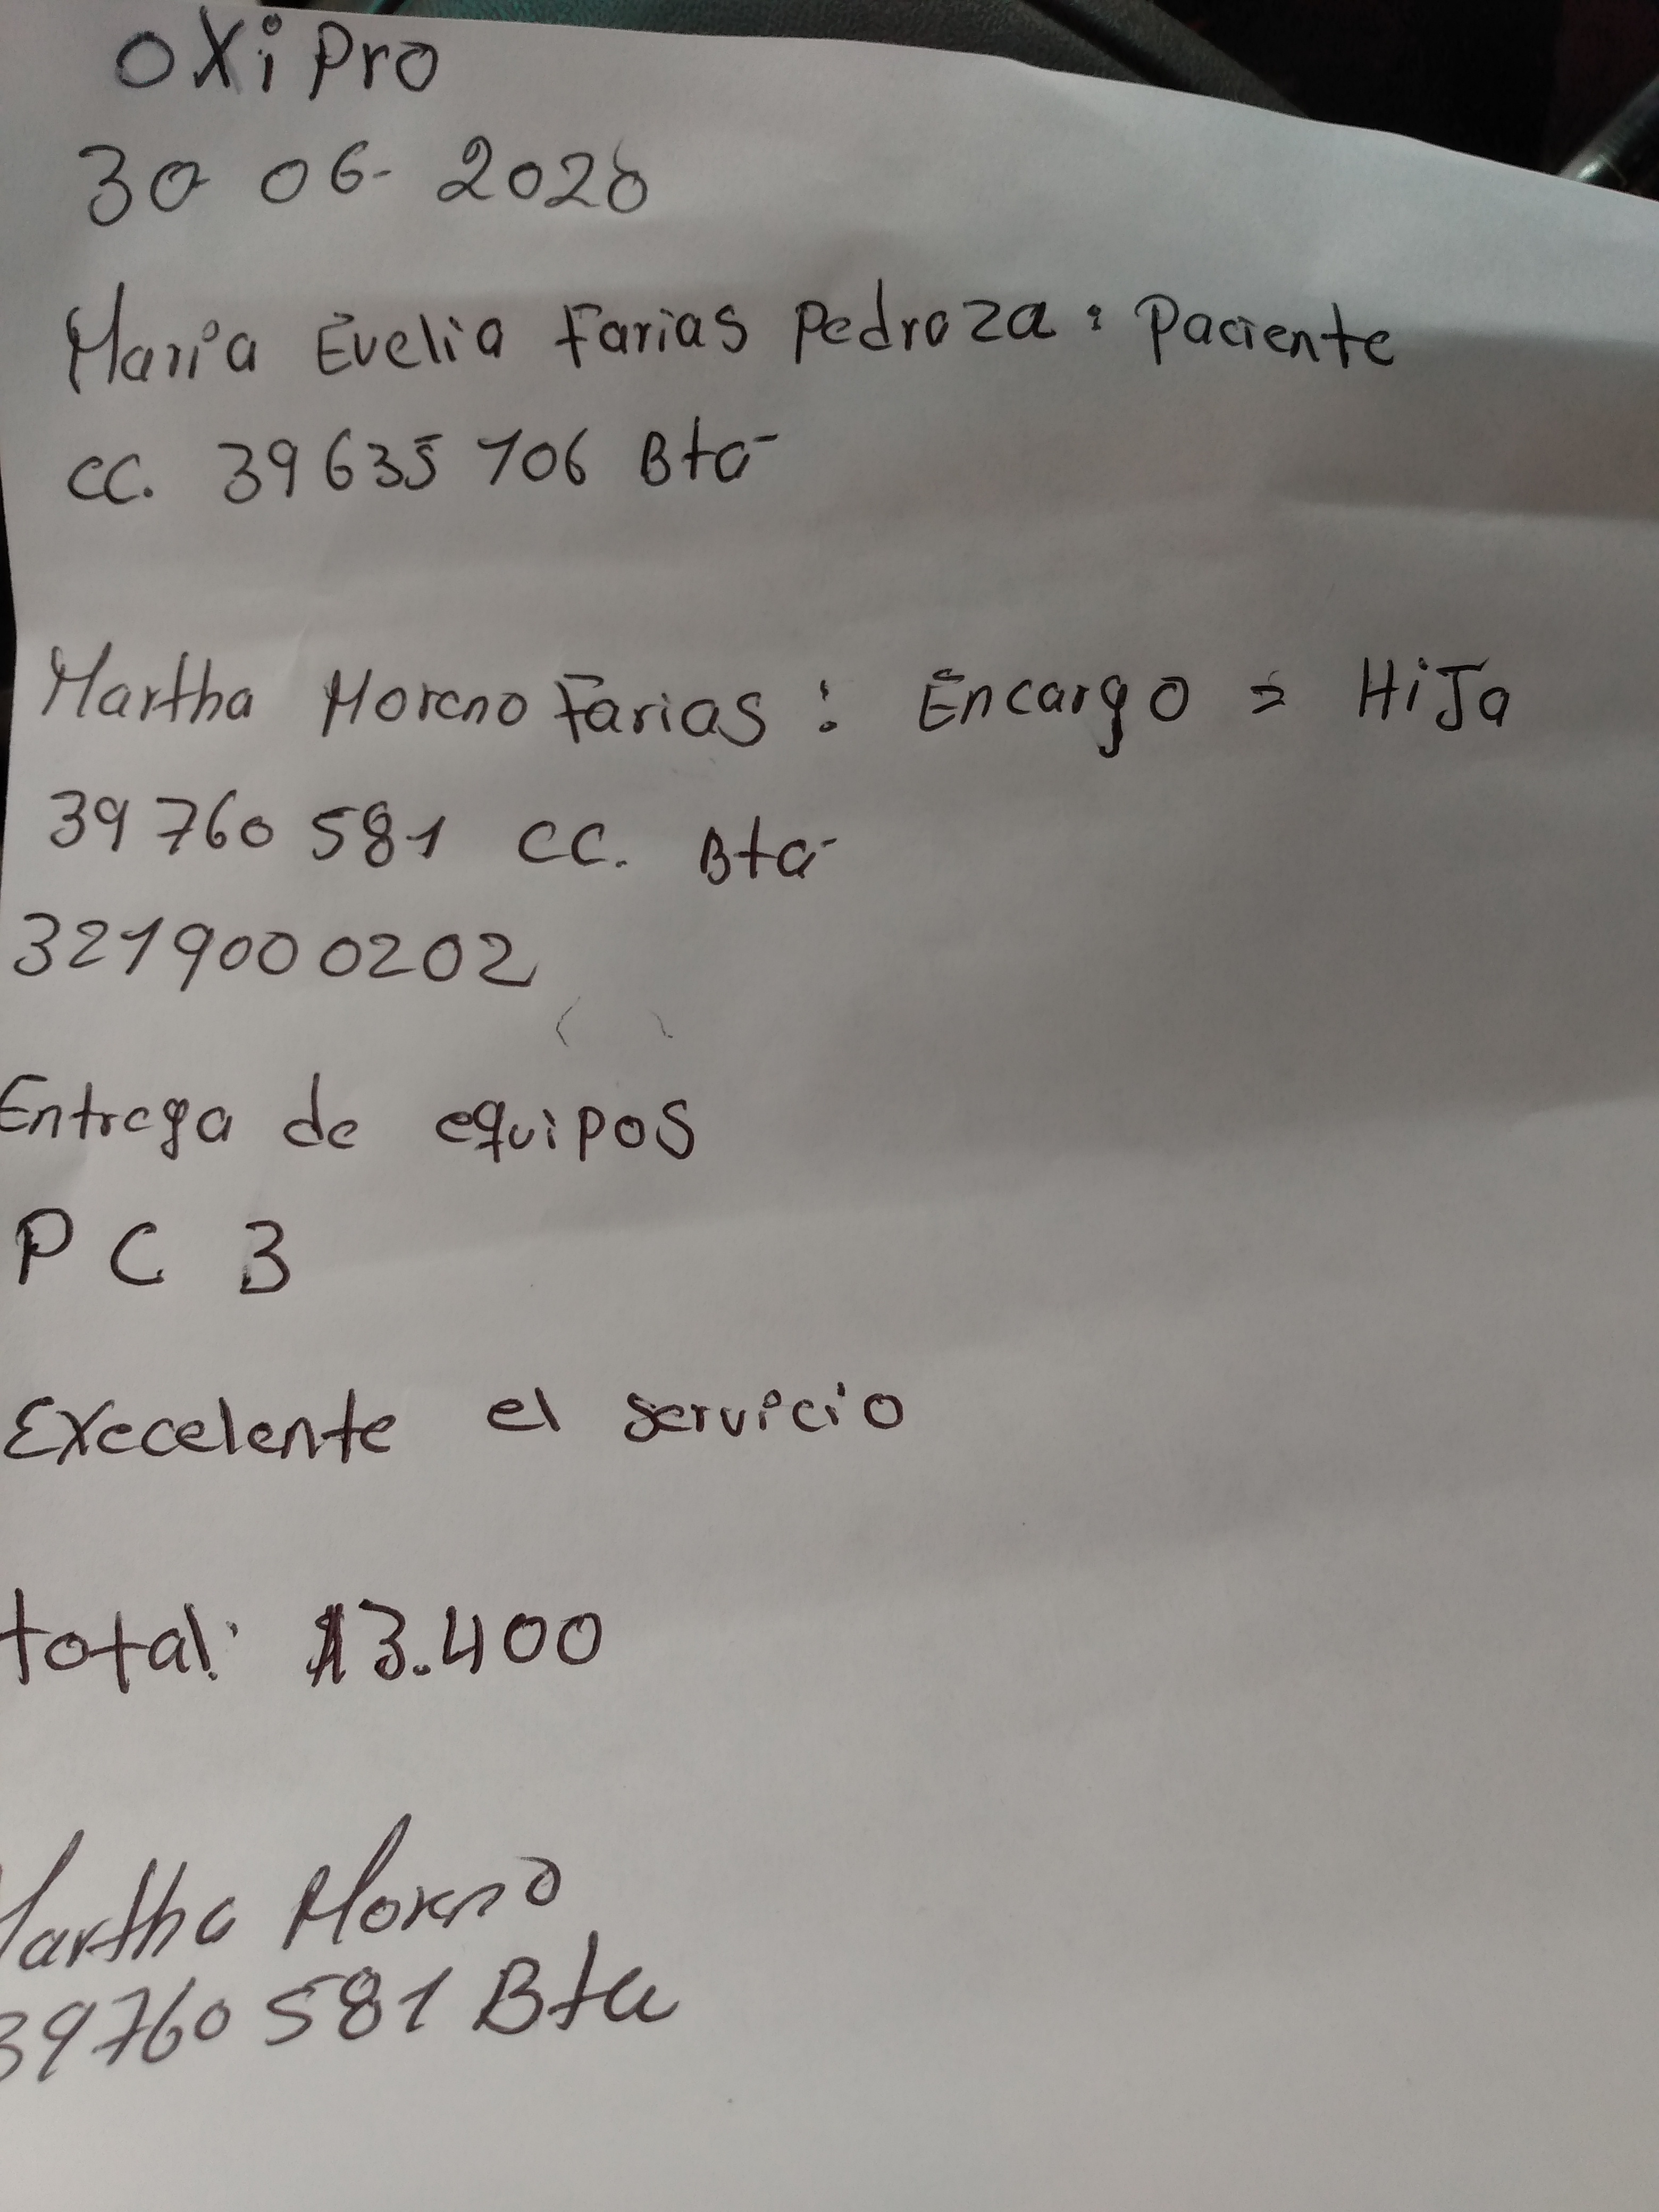 OXiPro
30 06- 2026
Maria Evelia Farias Pedroza: Paciente
CC. 39635106 Bta
Martha Moreno Farias: Encargo = HiJa
39760581 CC. Bta
3219000202
Entrega de equipos
P C 3
Execelente el servicio
total: $13.400
Martha Moreno
39760581 Bta